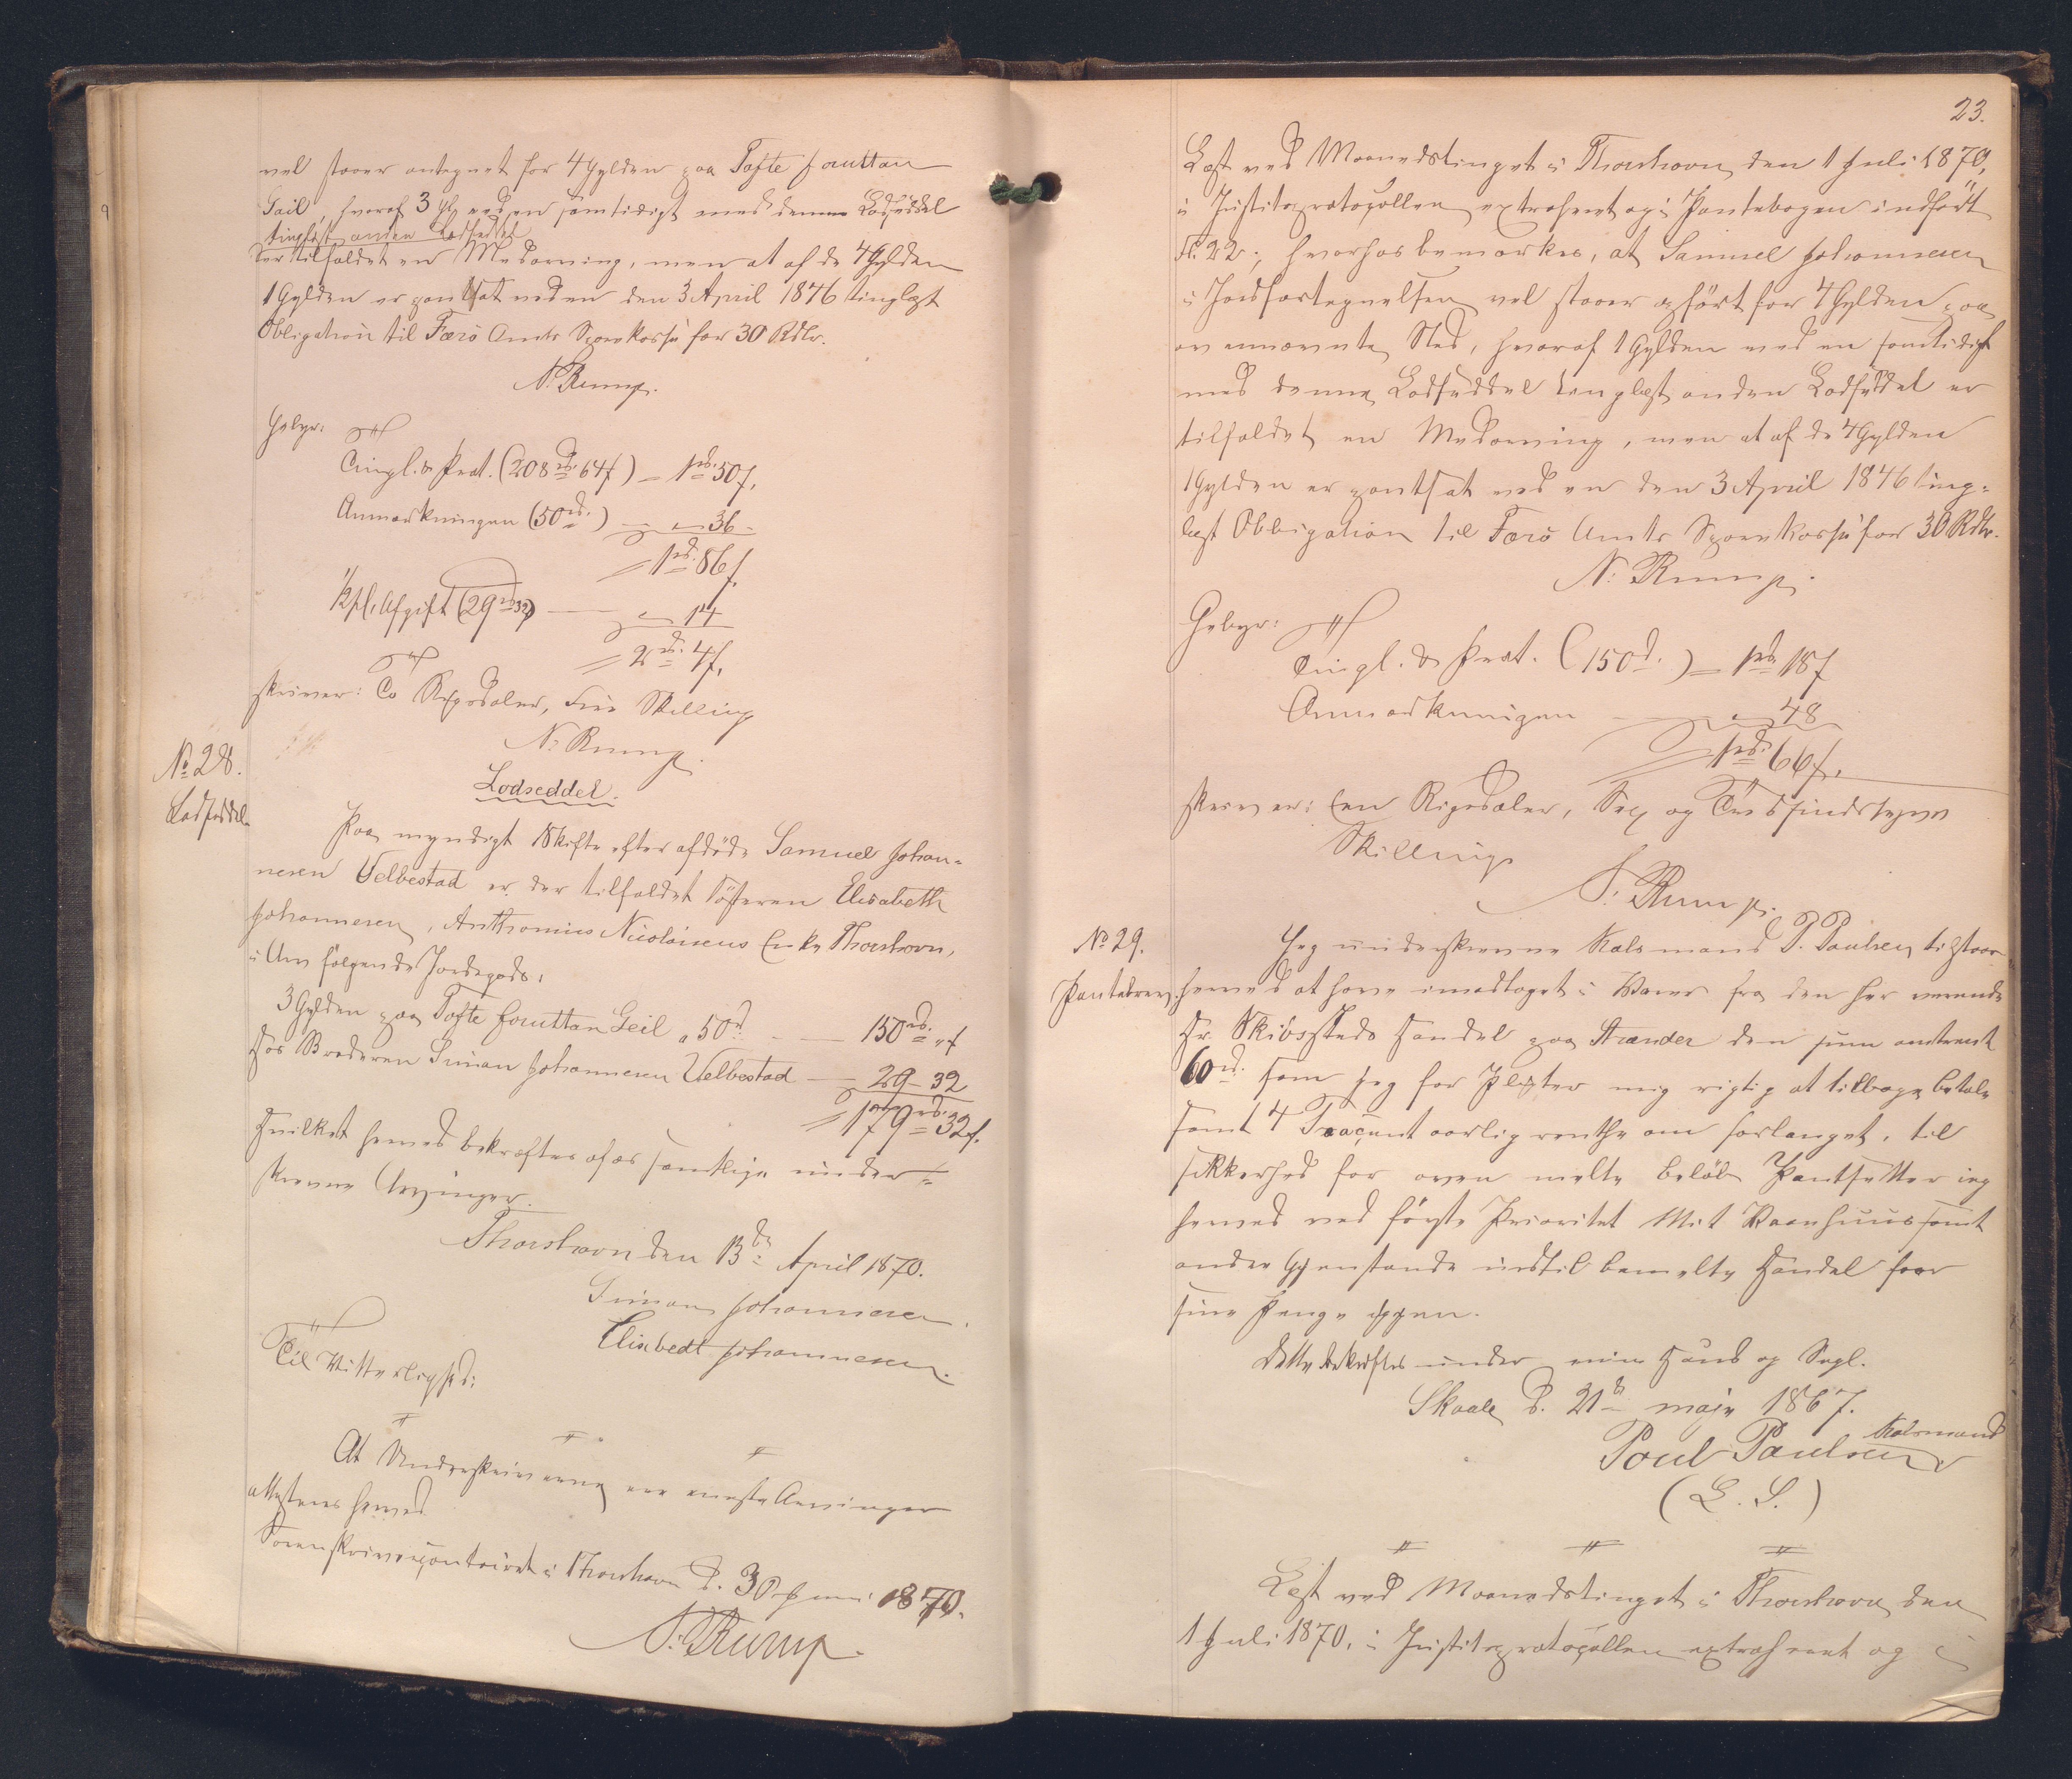 vel staaer antegnet for 4 Gylden paa Tofte fouttan
Gail, hvoraf 3 Gl. ved en samtidigt med denne Lodseddel
tinglæst anden Lodseddel
er tilfaldet en Medarving, men at af de 4 Gylden
1 Gylden er pantsat ved en den 3 April 1846 tinglæst
Obligation til Færö Amts Sparekasse for 30 Rdlr.
N. Rump.
Gebyr:
Tingl. & Prot. (208 rd. 64 ſ) = 1 rd. 50 ſ.
Anmærkningen (50 rd.) — " — 36 -
1 rd. 86 ſ.
½ pCt. Afgift (29 rd 32) — " 14
2 rd. 4 ſ.
skriver: To Rigsdaler, Fire Skilling
N. Rump.
No 28.
Lodseddel
Lodseddel.
Paa myndigt Skifte efter afdöde Samuel Johan-
nesen Velbestad er der tilfaldet Søsteren Elisabeth
Johannesen, Anthonius Nicolaisens Enke Thorshavn,
i Arv fölgende Jordegods:
3 Gylden paa Tofte fouttan Geil a 50 rd. — 150 rd. " ſ
Hos Broderen Simon Johannesen Velbestad — 29 - 32
179 rd. 32 ſ.
Hvilket herved bekræftes af os samtlige under-
skrevne Arvinger.
Thorshavn den 13de April 1870.
Simon Johannesen.
Elisabedt Johannesen.
Til Vitterlighed:
At Underskriverne ere eneste Arvinger
attesteres herved
Sorenskrivercontoiret i Thorshavn d. 30 Juni 1870.
N. Rump.
23.
Læst ved Maanedstinget i Thorshavn den 1 Juli 1870,
i Justitsprotocollen extraheret og i Pantebogen indfört
Fl. 22; hvorhos bemærkes, at Samuel Johannesen
i Jordfortegnelsen vel staaer opfört for 4 Gylden paa
ovennævnte Sted, hvoraf 1 Gylden ved en samtidigt
med denne Lodseddel tinglæst anden Lodseddel er
tilfaldet en Medarving, men at af de 4 Gylden
1 Gylden er pantsat ved en den 3 April 1846 ting-
læst Obligation til Færö Amts Sparekasse for 30 Rdlr.
N. Rump.
Gebyr:
Tingl. & Prot. (150 rd.) = 1 rd. 18 ſ
Anmærkningen — " — 48
1 rd. 66 ſ.
skriver: Een Rigsdaler, Sex og Tresindstyve
Skilling
N. Rump.
No 29.
Pantebrev.
Jeg underskrevne Kalsmand P. Paulsen tilstaar
herved at have imodtaget i Varer fra den her værende
Hr. Skibssteds Handel paa Strænder den sum omtrent
60 rd. som jeg for Plegter mig rigtig at tilbage betale
samt 4 Procent aarlig renthe om forlanget, til
sikkerhed for oven melte Beløb Pantsetter ieg
herved ved förste Prioritet Mit Vaanhuus samt
andre Gjenstande indtil bemelte Handel faar
sine Penge igjen.
Dette bekreftes under min Haand og Segl.
Skaale d. 21de maje 1867.
Poul Paulsen Kalsmand
(L. S.)
Læst ved Maanedstinget i Thorshavn den
1 Juli 1870, i Justitsprotocollen extraheret og i